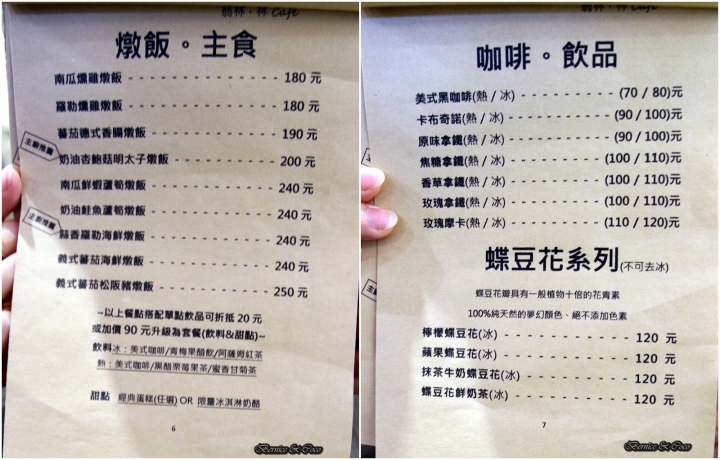 翡林·林 Cafe
燉飯。主食
南瓜燻雞燉飯 - - - - - - - - - - - - - - - - 180 元
羅勒燻雞燉飯 - - - - - - - - - - - - - - - - 180 元
蕃茄德式香腸燉飯 - - - - - - - - - - - - - - 190 元
主廚推薦
奶油杏鮑菇明太子燉飯 - - - - - - - - - - - 200 元
南瓜鮮蝦蘆筍燉飯 - - - - - - - - - - - - - 240 元
奶油鮭魚蘆筍燉飯 - - - - - - - - - - - - - 240 元
主廚推薦
蒜香羅勒海鮮燉飯 - - - - - - - - - - - - - 240 元
義式蕃茄海鮮燉飯 - - - - - - - - - - - - - 240 元
義式蕃茄松阪豬燉飯 - - - - - - - - - - - - 250 元
~以上餐點搭配單點飲品可折抵 20 元
或加價 90 元升級為套餐(飲料&甜點)~
飲料冰：美式咖啡/青梅果醋飲/阿薩姆紅茶
熱：美式咖啡/黑醋栗莓果茶/蜜香甘菊茶
甜點 經典蛋糕(任選) OR 限量冰淇淋奶酪
6
Bernice & Coco
林·林 Cafe
咖啡。飲品
美式黑咖啡(熱 / 冰) - - - - - - - - - - (70 / 80)元
卡布奇諾(熱 / 冰) - - - - - - - - - - - (90 / 100)元
原味拿鐵(熱 / 冰) - - - - - - - - - - - (90 / 100)元
焦糖拿鐵(熱 / 冰) - - - - - - - - - - (100 / 110)元
香草拿鐵(熱 / 冰) - - - - - - - - - - (100 / 110)元
玫瑰拿鐵(熱 / 冰) - - - - - - - - - - (100 / 110)元
玫瑰摩卡(熱 / 冰) - - - - - - - - - - (110 / 120)元
蝶豆花系列(不可去冰)
蝶豆花瓣具有一般植物十倍的花青素
100%純天然的夢幻顏色、絕不添加色素
檸檬蝶豆花(冰) - - - - - - - - - - - - - - 120 元
蘋果蝶豆花(冰) - - - - - - - - - - - - - - 120 元
抹茶牛奶蝶豆花(冰) - - - - - - - - - - - - 120 元
蝶豆花鮮奶茶(冰) - - - - - - - - - - - - - 120 元
7
Bernice & Coco